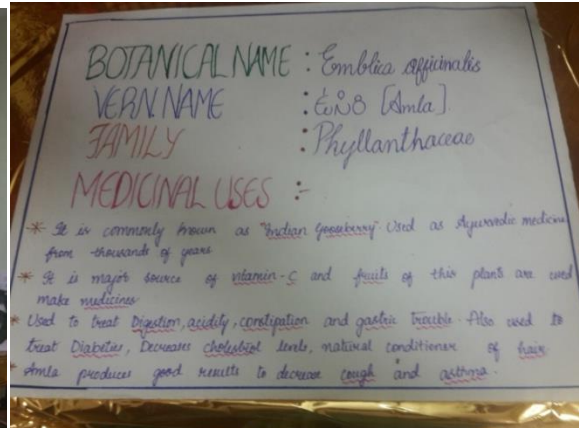 BOTANICAL NAME : Emblica officinalis
VERN. NAME : [Amla].
FAMILY : Phyllanthaceae
MEDICINAL USES :-
* It is commonly known as "Indian Gooseberry". Used as Ayurvedic medicine
from thousands of years
* It is major source of vitamin-C and fruits of this plants are used
make medicines
* Used to treat Digestion, acidity, constipation and gastric trouble. Also used to
treat Diabeties, Decreases levels, natural conditioner of hair
* Amla produces good results to decrease cough and asthma.